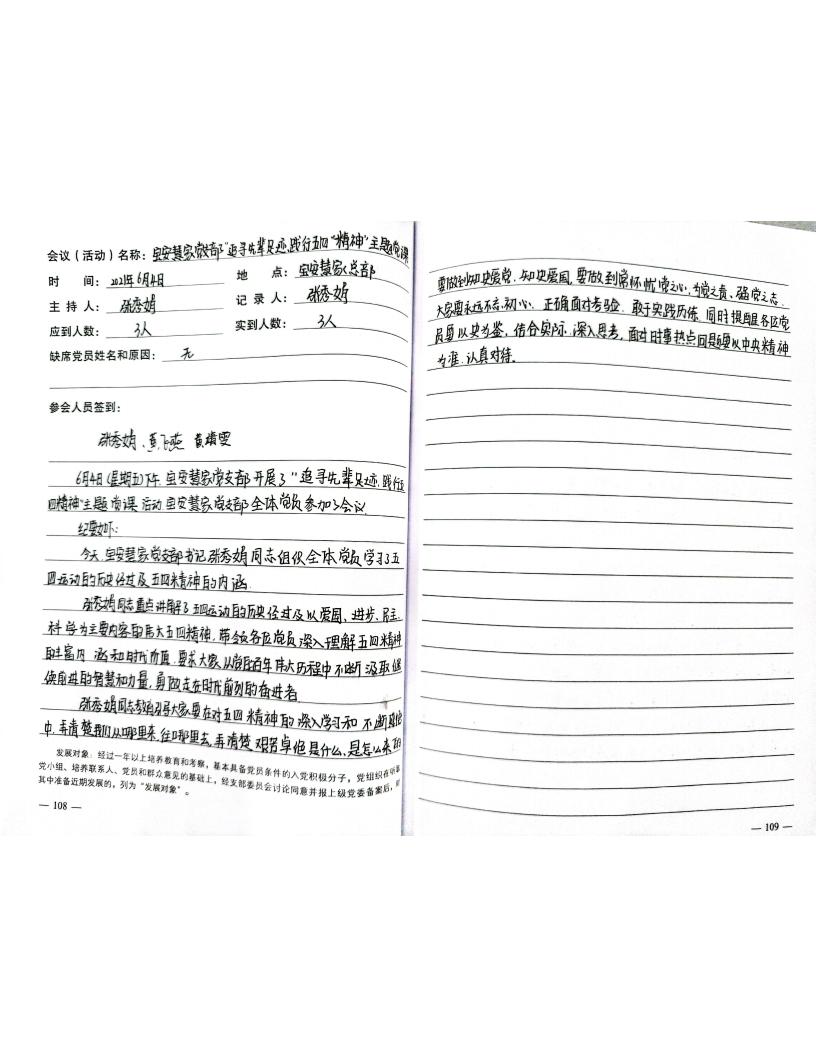 会议（活动）名称：宝安慧家党支部“追寻先辈足迹，践行五四“精神”主题党课
时 间：2021年6月4日 地 点：宝安慧家总部
主 持 人：张秀娟 记 录 人：张秀娟
应到人数：3人 实到人数：3人
缺席党员姓名和原因：无
参会人员签到：
张秀娟、
6月4日(星期五)下午，宝安慧家党支部开展了“追寻先辈足迹，践行五
四精神”主题党课活动，宝安慧家党支部全体党员参加了会议。
纪要如下：
今天，宝安慧家党支部书记张秀娟同志组织全体党员学习了五
四运动的历史经过及五四精神的内涵。
张秀娟同志重点讲解了五四运动的历史经过及以爱国、进步、民主、
科学为主要内容的伟大五四精神，带领各位党员深入理解五四精神
的丰富内涵和时代价值，要求大家从党的百年伟大历程中不断汲取继
续前进的智慧和力量，勇做走在时代前列的奋进者。
张秀娟同志大家要在对五四精神的深入学习和不断
中，弄清楚我们从哪里来，往哪里去，弄清楚艰苦卓绝是什么、是怎么来的
发展对象：经过一年以上培养教育和考察，基本具备党员条件的入党积极分子，党组织在听取
党小组、培养联系人、党员和群众意见的基础上，经支部委员会讨论同意并报上级党委备案后，可
其中准备近期发展的，列为“发展对象”。
— 108 —
要做到知史爱党，知史爱国，要做到常怀忧党之心，为党之责、强党之志。
大家要永远不忘初心，正确面对考验，敢于实践历练，同时提醒各位党
员要以史为鉴，结合实际，深入思考，面对时事热点问题要以中央精神
为准，认真对待。
— 109 —